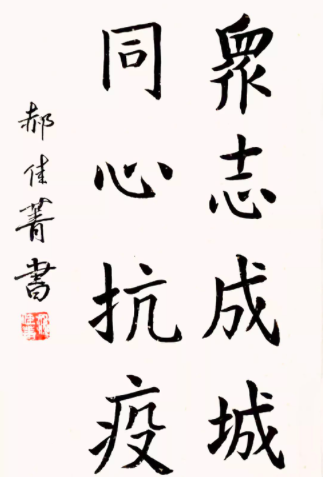 眾志成城
同心抗疫
郝佳菁書